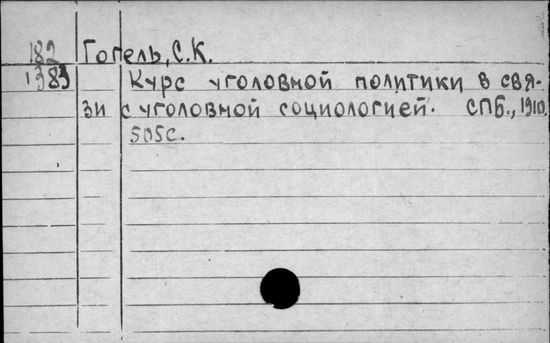 182 Гогель, С.К.
1383 Курс уголовной политики в свя-
зи с уголовной социологией. СПБ., 1910.
505с.